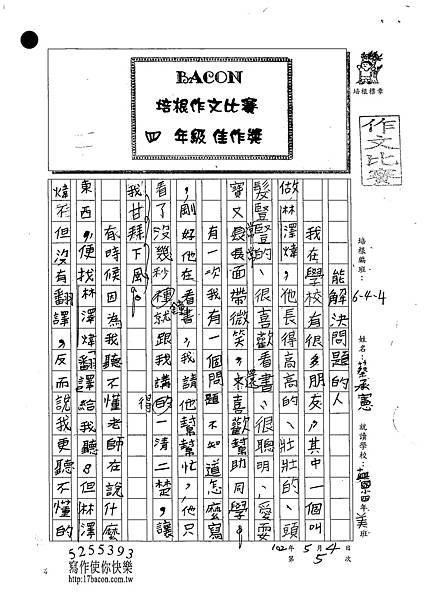 BACON
培根作文比賽
四 年級 佳作獎
培根標章
作文比賽
培根編班：6-4-4
姓名：蔡承憲
就讀學校：小四年美班
102年5月4日
第5次
能解決問題的人
我在學校有很多朋友，其中一個叫
做林澤煒，他長得高高的、壯壯的、頭
髮豎豎的、很喜歡看書、很聰明、愛耍
寶又長長面帶微笑，還喜歡幫助同學。
有一次我有一個問題不知道怎麼寫
，剛好他在看書，我請他幫幫忙，他只
看了沒幾秒鐘就跟我講的一清二楚，讓
我甘拜下風。
有時候因為我聽不懂老師在說什麼
東西，便找林澤煒翻譯給我聽。但林澤
煒不但沒有翻譯，反而說得我更聽不懂的
5255393
寫作使你快樂
http://17bacon.com.tw